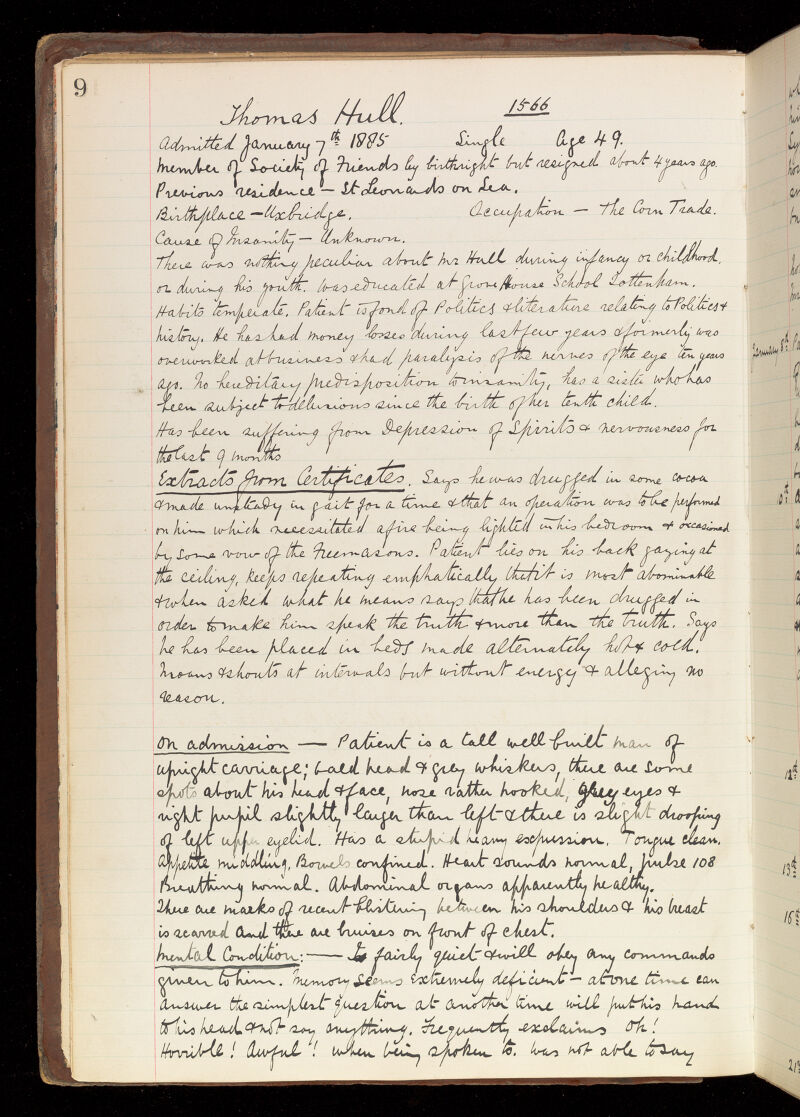 9
Thomas Hull. 1566
Admitted January 7th 1885 Single Age 49.
Member of Society of Friends by birthright but resigned about 4 years ago.
Previous residence – St Leonards on Sea.
Birthplace – Uxbridge. Occupation – The Corn Trade.
Cause of Insanity – Unknown.
There was nothing peculiar about Mr Hull during infancy or childhood,
or during his youth. was educated at Grove House School Tottenham.
Habits temperate. Patient is fond of Politics & literature relating to Politics &
history. He has had money losses during last few years & formerly was
overworked at business & had paralysis of the nerves of the eye ten years
ago. No hereditary predisposition to insanity, has a sister who has
been subject to delusions since the birth of her tenth child.
Has been suffering from Depression of Spirits & nervousness for
the last 9 months
Extracts from Certificates. Says he was drugged in some cocoa
& made unsteady in gait for a time & that an operation was to be performed
on him which necessitated a fire being lighted in his bedroom & occasioned
by some vow of the Freemasons. Patient lies on his back gazing at
the ceiling, keeps repeating emphatically that it is most abominable
& when asked what he means says that he has been drugged in
order to make him speak the truth & more than the truth. Says
he has been placed in beds made alternately hot & cold.
Moans & shouts at intervals but without energy & alleging no
reason.
On admission — Patient is a tall well built man of
upright carriage; bald head & grey whiskers, there are some
spots about his head & face, nose rather hooked, grey eyes &
right pupil slightly larger than left & there is slight drooping
of left upper eyelid. Has a stupid heavy expression. Tongue clean.
Appetite middling. Bowels confined. Heart sounds normal, pulse 108
Breathing normal. Abdominal organs apparently healthy.
There are marks of recent blistering between his shoulders & his breast
is scarred and there are bruises on front of chest.
Mental Condition: — Is fairly quiet & will obey any commands
given to him. Memory seems extremely deficient – at one time can
answer the simplest question at another time will put his hand
to his head & not say anything. Frequently exclaims Oh!
Horrible! Awful! when being spoken to. Was not able to say
January 8th
10th
12th
13th